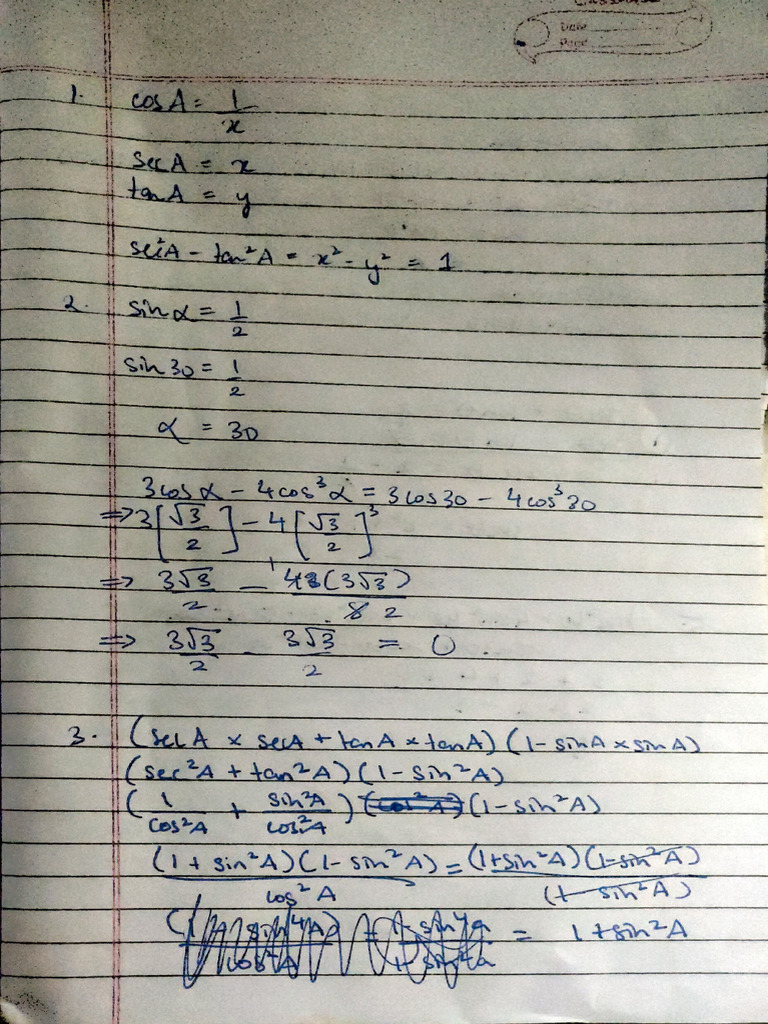 Date
Page
1. cos A = 1/x
sec A = x
tan A = y
sec²A - tan²A = x² - y² = 1
2. sin α = 1/2
sin 30 = 1/2
α = 30
3cos α - 4cos³α = 3cos30 - 4cos³30
⇒ 3[√3/2] - 4[√3/2]³
⇒ 3√3/2 - 4(3√3)/8 2
⇒ 3√3/2 - 3√3/2 = 0
3. (sec A × sec A + tan A × tan A)(1 - sin A × sin A)
(sec²A + tan²A)(1 - sin²A)
(1/cos²A + sin²A/cos²A) (1 - sin²A)
(1 + sin²A)(1 - sin²A)/cos²A = (1 + sin²A)(1 - sin²A)/(1 - sin²A)
= 1 + sin²A